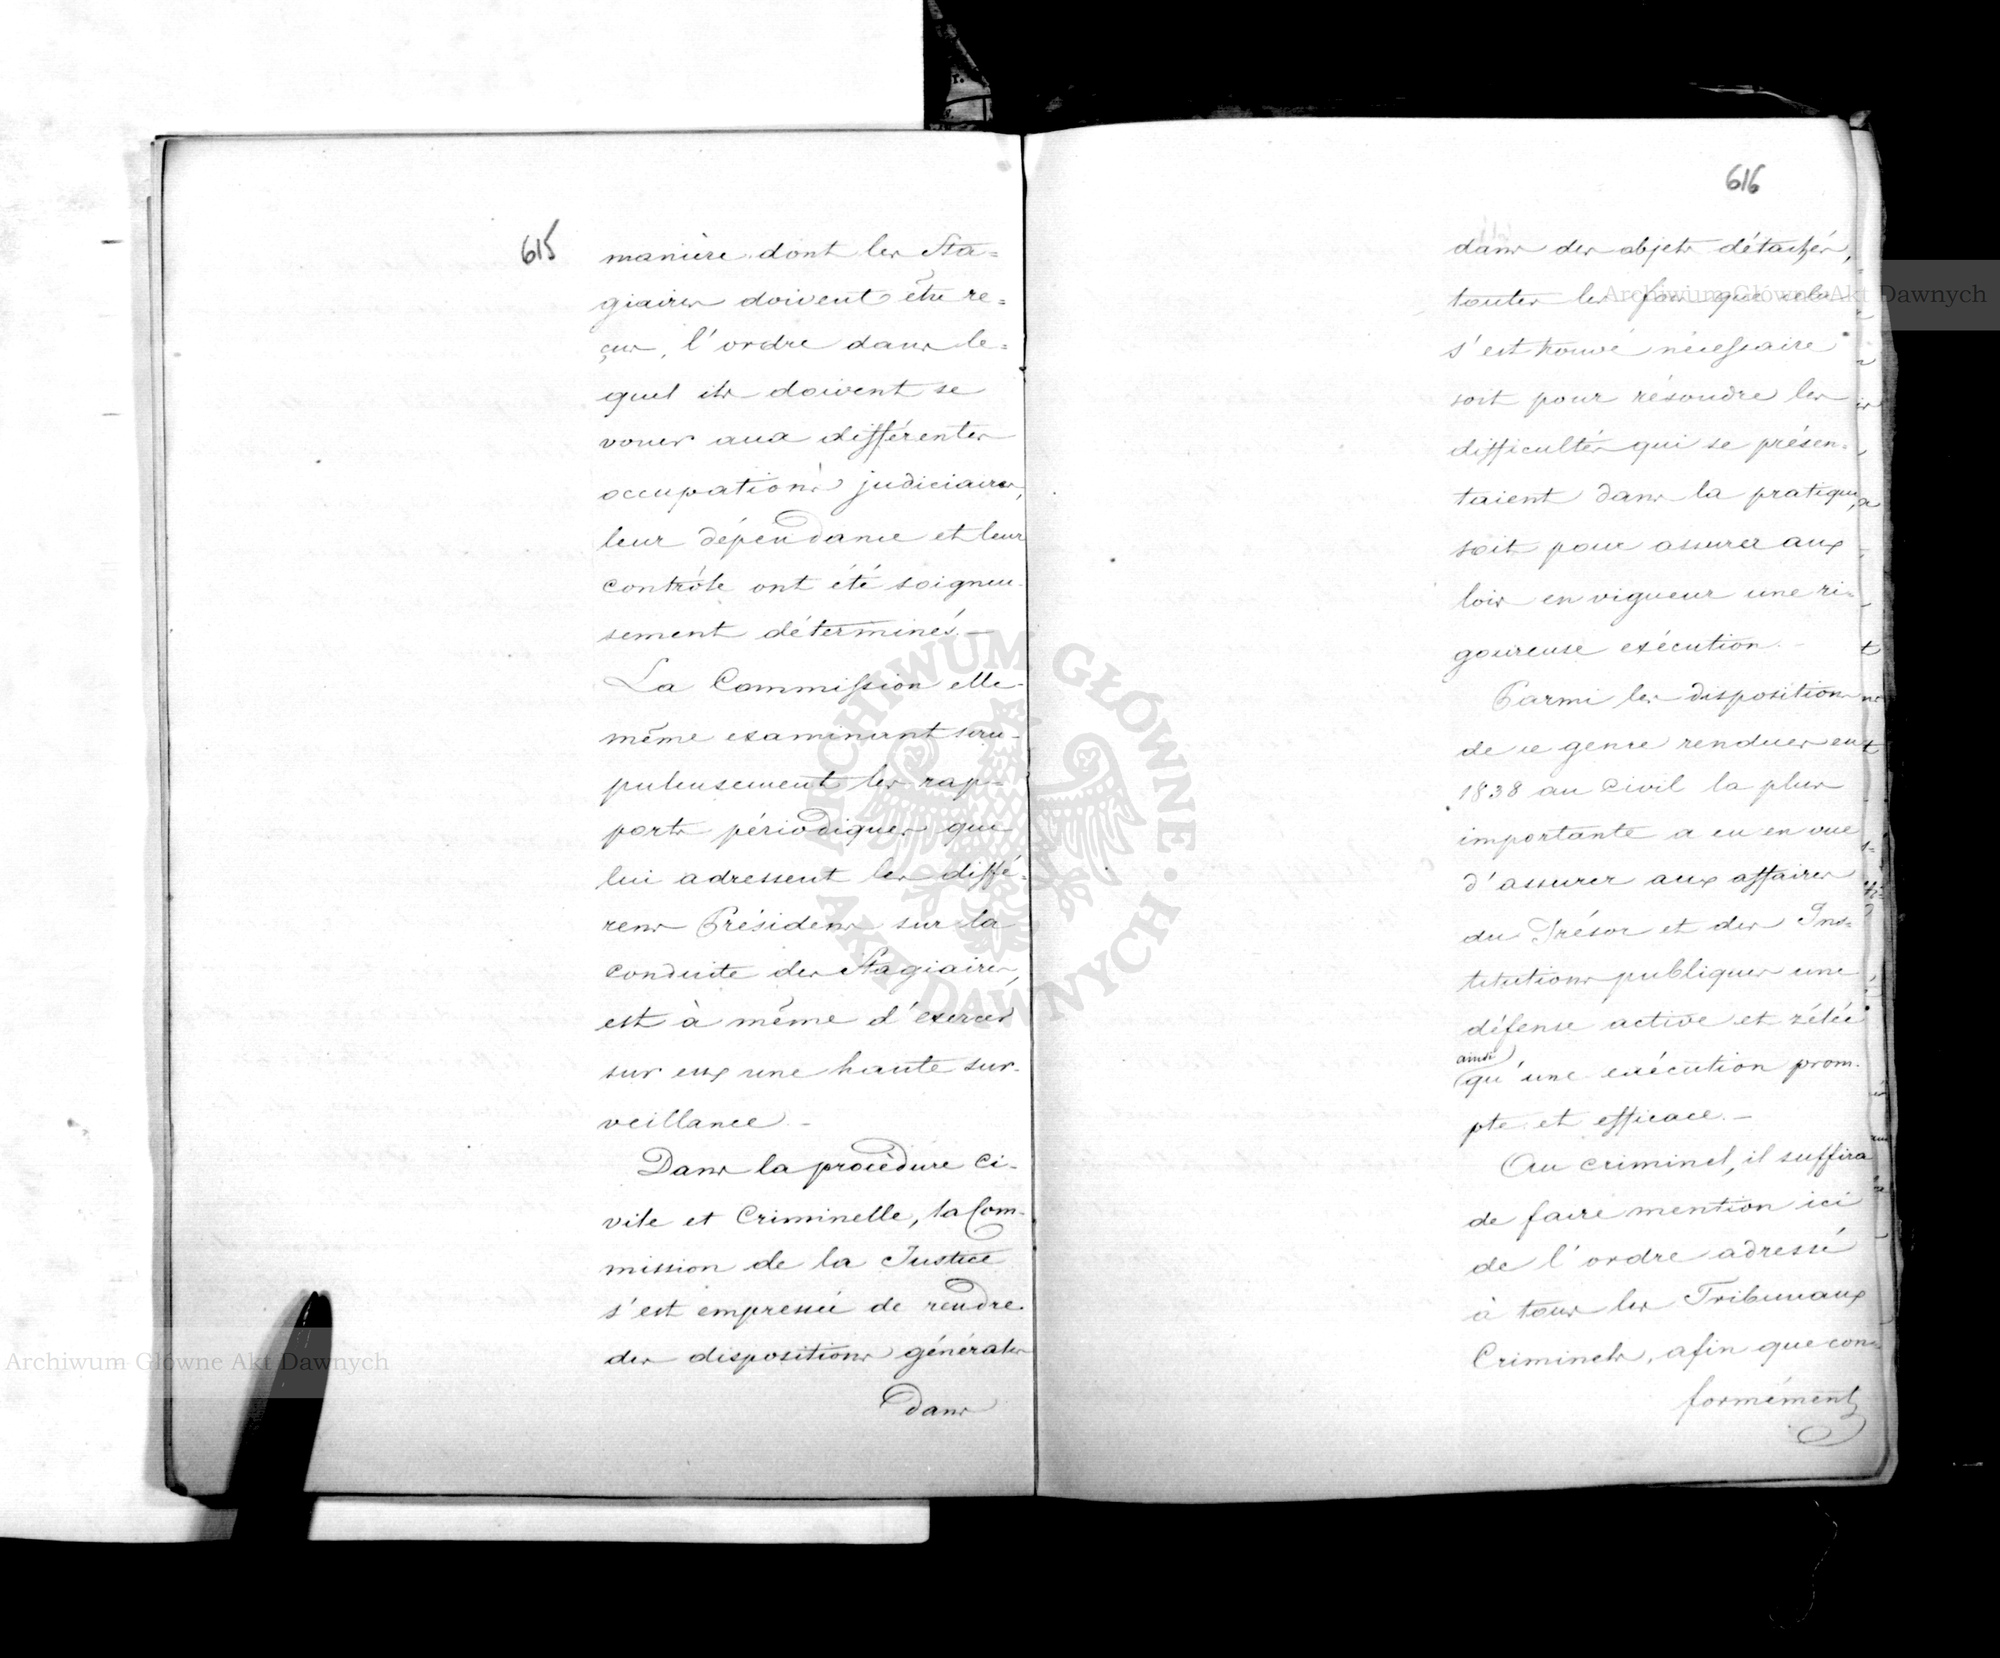 615
manière dont les Sta=
giaires doivent être re=
çus, l'ordre dans le=
quel ils doivent se
vouer aux différentes
occupations judiciaires,
leur dépendance et leur
contrôle ont été soigneu-
sement déterminés.—
La Commission elle-
même examinant scru-
puleusement les rap-
ports périodiques que
lui adressent les diffé-
rens Présidens sur la
conduite des Stagiaires,
est à même d'exercer
sur eux une haute sur-
veillance.—
Dans la procédure ci-
vile et Criminelle, la Com-
mission de la Justice
s'est empressée de rendre
des dispositions générales
dans
616
dans des objets détachés,
toutes les fois que cela
s'est trouvé nécessaire
soit pour résoudre les
difficultés qui se présen-
taient dans la pratique,
soit pour assurer aux
lois en vigueur une ri-
goureuse exécution.—
Parmi les dispositions
de ce genre rendues en
1838 au Civil la plus
importante a eu en vue
d'assurer aux affaires
du Trésor et des Ins-
titutions publiques une
défense active et zélée
ainsi
qu'une exécution prom-
pte et efficace.—
Au criminel, il suffira
de faire mention ici
de l'ordre adressé
à tous les Tribunaux
Criminels, afin que con-
formément
Archiwum Główne Akt Dawnych
Archiwum Główne Akt Dawnych
ARCHIWUM GŁÓWNE · AKT DAWNYCH ·